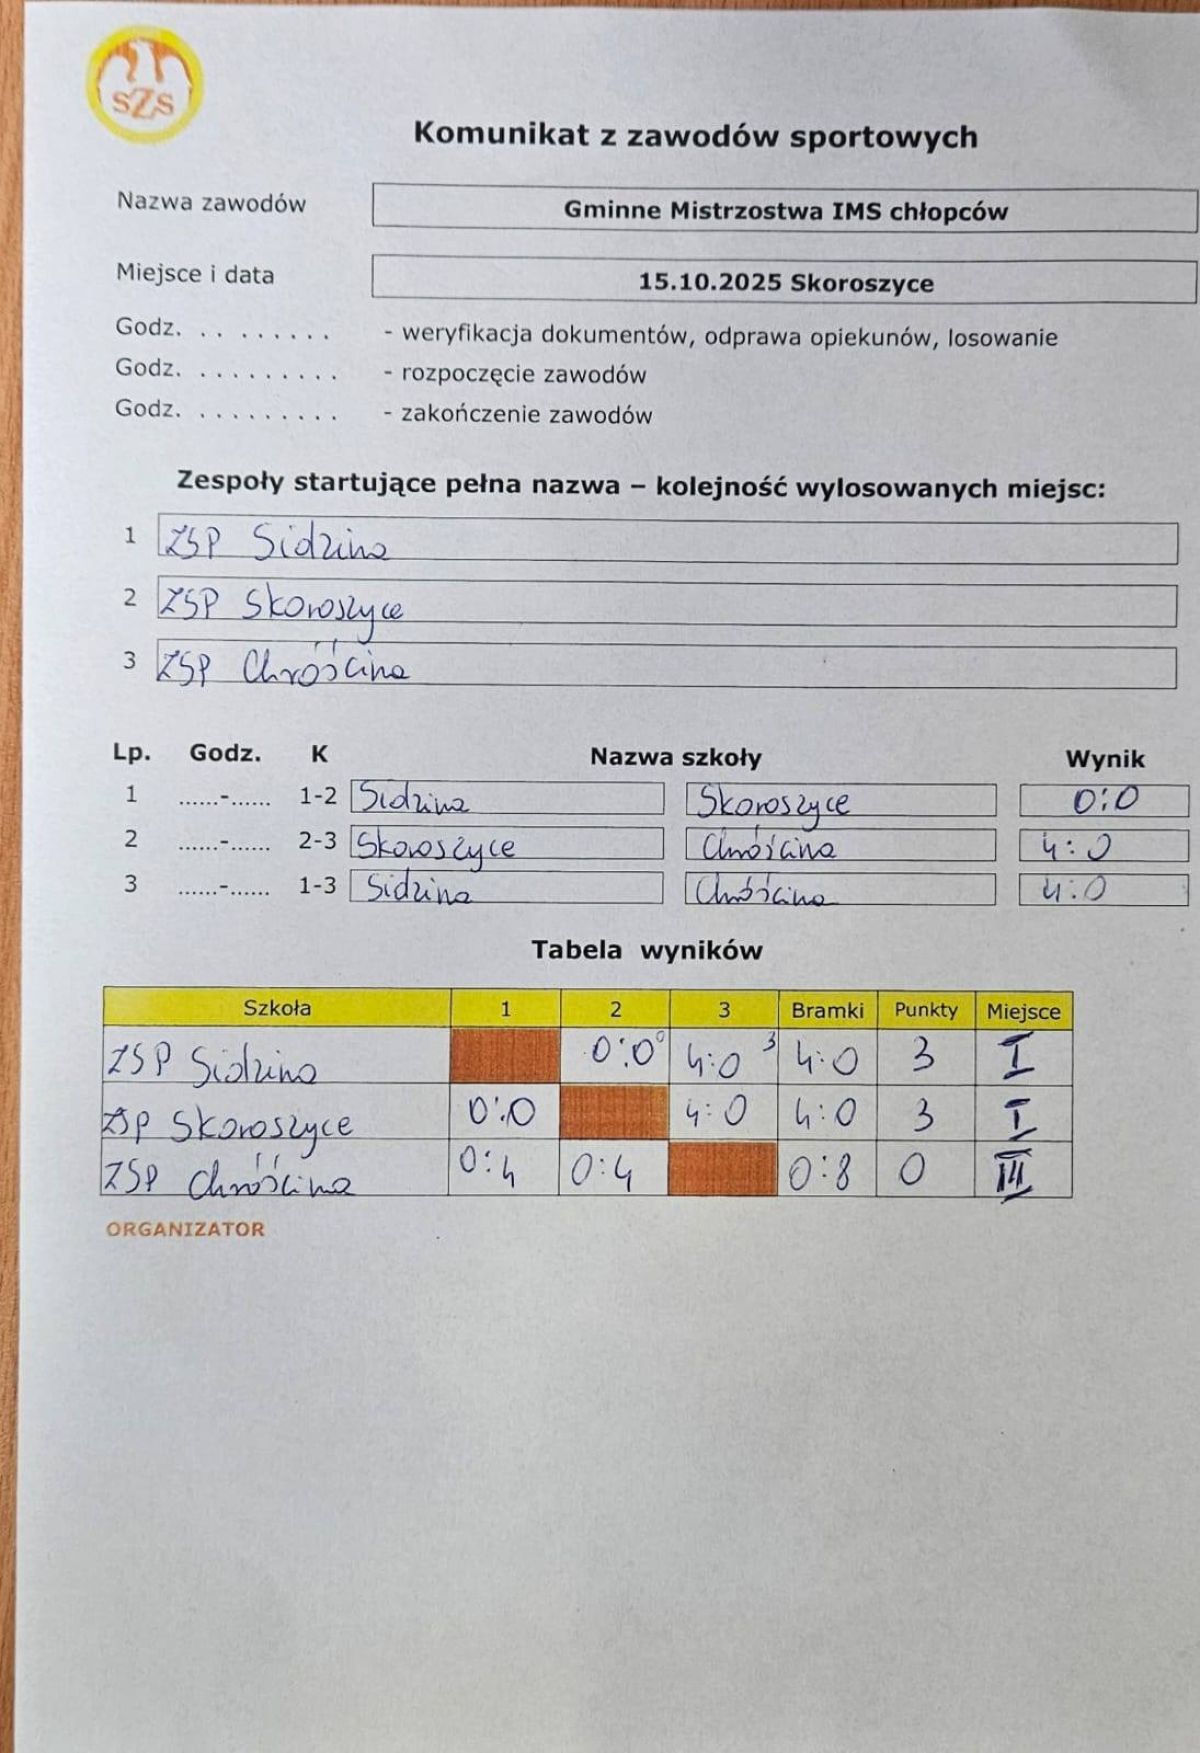 SZS
Komunikat z zawodów sportowych
Nazwa zawodów Gminne Mistrzostwa IMS chłopców
Miejsce i data 15.10.2025 Skoroszyce
Godz. . . . . . . . . - weryfikacja dokumentów, odprawa opiekunów, losowanie
Godz. . . . . . . . . . - rozpoczęcie zawodów
Godz. . . . . . . . . . - zakończenie zawodów
Zespoły startujące pełna nazwa – kolejność wylosowanych miejsc:
1 ZSP Sidzina
2 ZSP Skoroszyce
3 ZSP Chróścina
Lp. Godz. K Nazwa szkoły Wynik
1 ......-...... 1-2 Sidzina Skoroszyce 0:0
2 ......-...... 2-3 Skoroszyce Chróścina 4:0
3 ......-...... 1-3 Sidzina Chróścina 4:0
Tabela wyników
Szkoła 1 2 3 Bramki Punkty Miejsce
ZSP Sidzina 0:0 0 4:0 3 4:0 3 I
ZSP Skoroszyce 0:0 4:0 4:0 3 I
ZSP Chróścina 0:4 0:4 0:8 0 III
ORGANIZATOR